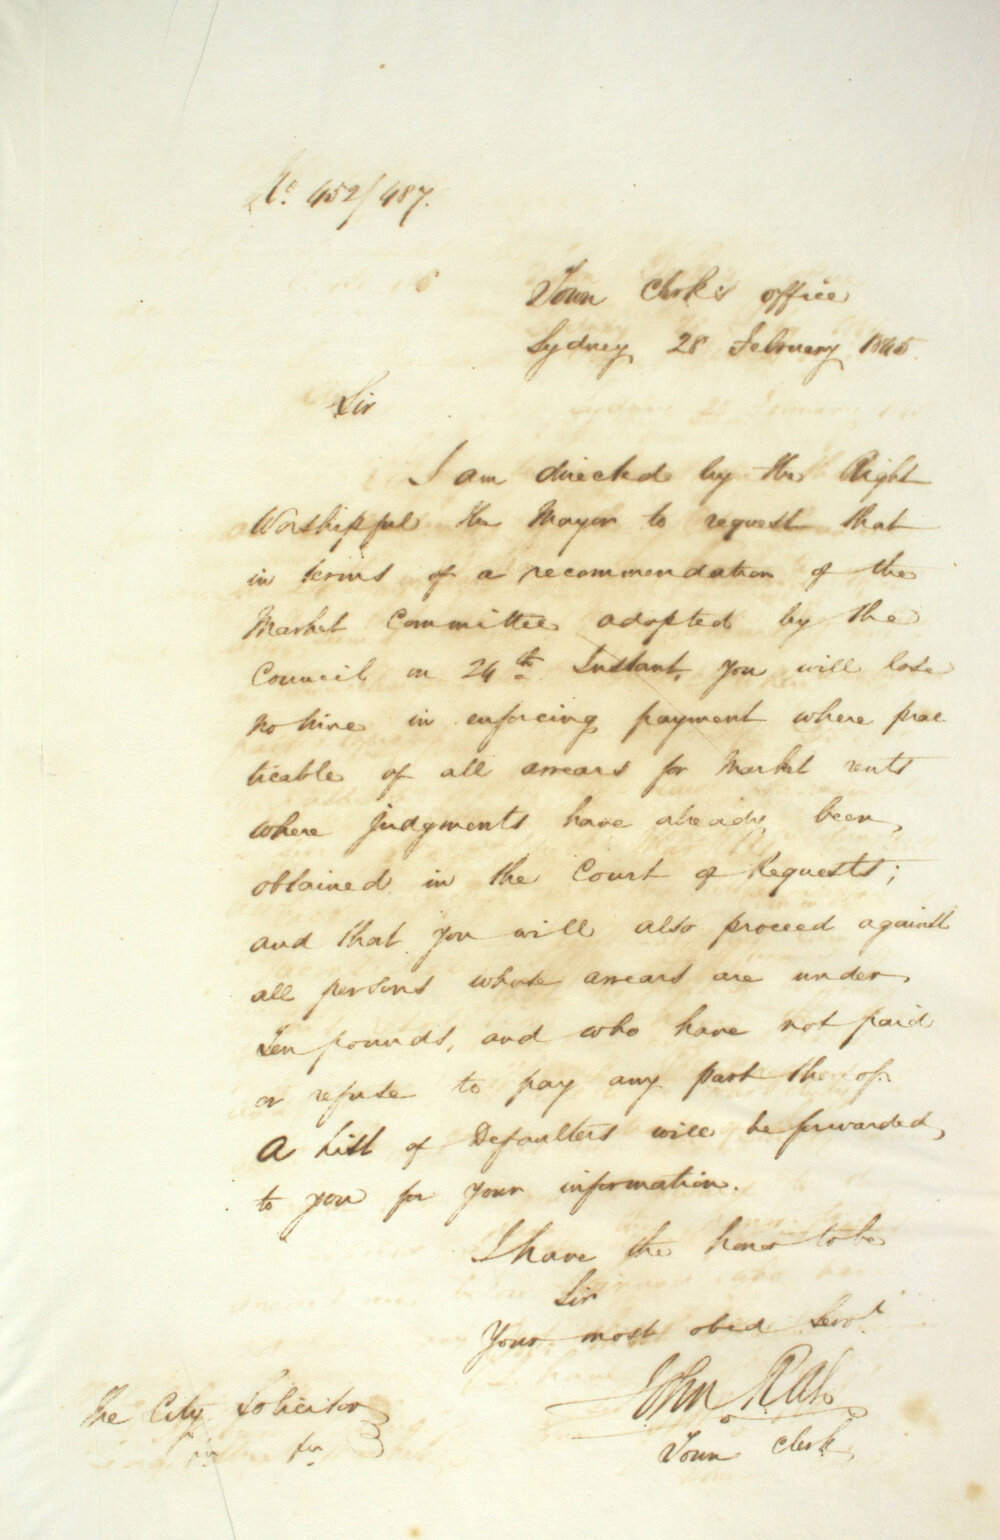 No. 452/487.
Town Clerk's office
Sydney 28 February 1845.
Sir
I am directed by the Right
Worshipful the Mayor to request that
in terms of a recommendation of the
Market Committee adopted by the
Council on 24th Instant, you will lose
no time in enforcing payment where prac
ticable of all arrears for Market rents
where judgments have already been,
obtained in the Court of Requests;
and that you will also proceed against
all persons whose arrears are under
Ten pounds, and who have not paid
or refuse to pay any part thereof.
A List of Defaulters will be forwarded,
to you for your information.
I have the honor to be
Sir
Your most obed Servt
John Rae
Town Clerk
The City Solicitor